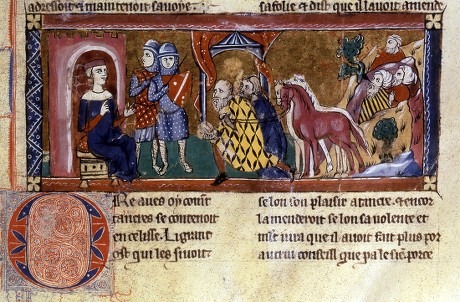 adresoit & maintenoit sauoye
safolie & dist que il lauoit amende
ORe aues oy cōmt
tancres se contenoit
en celisse. Ligrant
ost qui les siuoit
selon son plaisir atancre. & encor
lamenderoit selon sa volente et
mlt iura que il auoit fait plus por
autrui conseill que pa le sie. porce